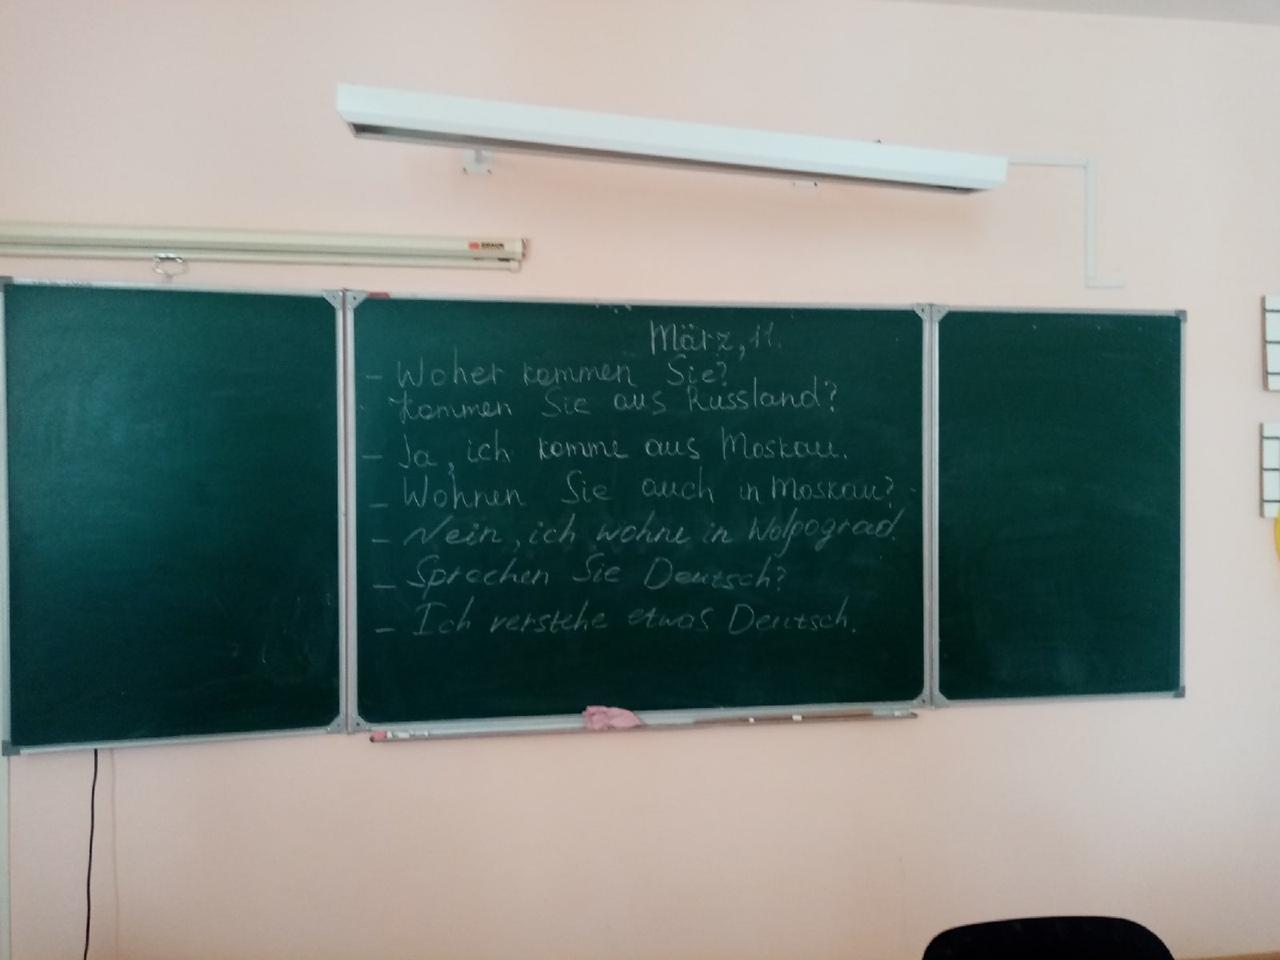 BRAUN
März, 11.
- Woher kommen Sie?
Kommen Sie aus Russland?
- Ja, ich komme aus Moskau.
- Wohnen Sie auch in Moskau?
- Nein, ich wohne in Wolgograd.
- Sprechen Sie Deutsch?
- Ich verstehe etwas Deutsch.